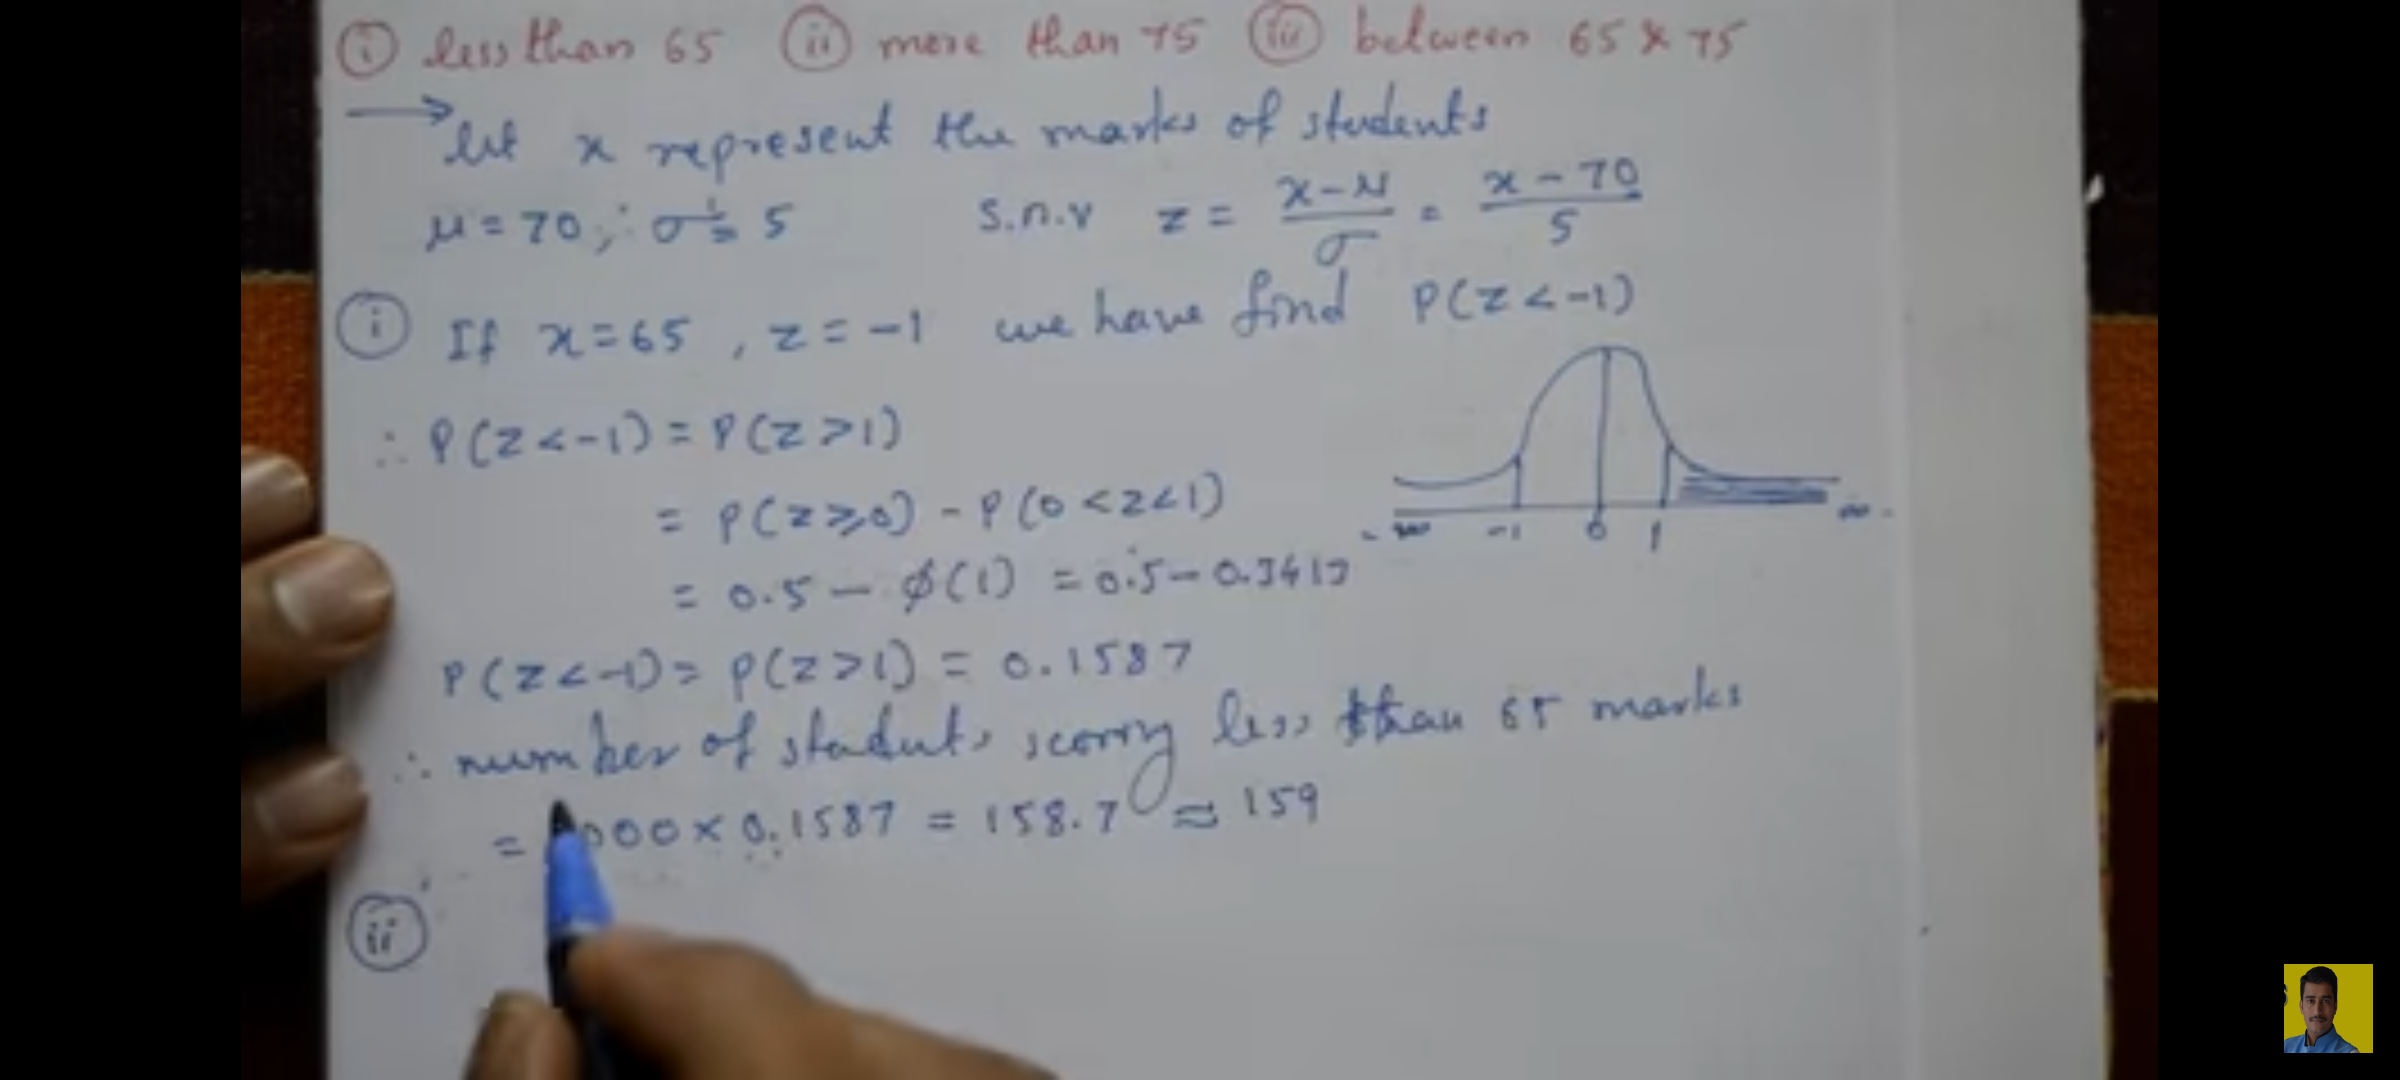 (i) less than 65 (ii) more than 75 (iii) between 65 & 75
→ let x represent the marks of students
μ = 70, σ = 5 s.n.v z = x-μ/σ = x-70/5
(i) If x = 65, z = -1 we have find P(z < -1)
∴ P(z < -1) = P(z > 1)
= P(z ≥ 0) - P(0 < z < 1)
= 0.5 - φ(1) = 0.5 - 0.3413
-∞ -1 0 1 ∞
P(z < -1) = P(z > 1) = 0.1587
∴ number of students scoring less than 65 marks
= 000 × 0.1587 = 158.7 ≈ 159
(ii)